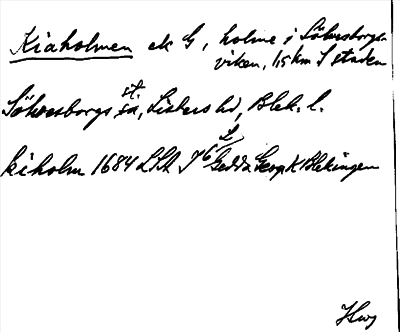 Kiaholmen ek G, holme i Sölvesborgs-
viken, 1,5 km S staden
Sölvesborgs st., Listers hd, Blek. l.
kiholm 1684 LSA Gedda Geogr K Blekingen
Hwg